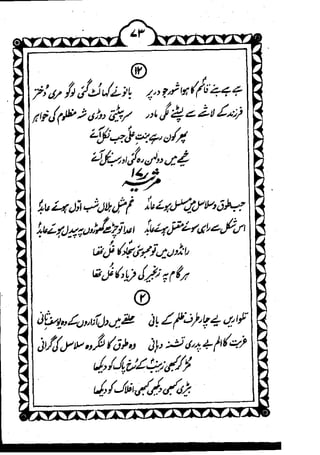 ۷۳
۱۴
ہے ہے بنے قاسم کا ہوا شور جو در پر بانو نے کہا لٹ گئی لوگو مری دختر
فرزند کے لاشے سے لپٹنے لگی مادر سر پیٹتی دوڑی شہ مظلوم کی خواہر
پھر کون رہے بنت علی جب نکل آئے
خیمے میں دولہن رہ گئی اور سب نکل آئے
مرثیہ ۱۷
جب طوق و سلاسل میں مسلسل ہوئے عابد غم مثل ہلال شب اول ہوئے عابد
اس شکل سے راہی سوئے مقتل ہوئے عابد اعدا تو چڑھے گھوڑوں پہ پیدل ہوئے عابد
رانڈوں میں تو محبوسی سجاد کا غل تھا
ہر گام پہ زنجیر کی فریاد کا غل تھا
۲
تلواریں لیے چار طرف ظلم کے بانی حلقے میں دل آزاروں کے وہ یوسف ثانی
غربت کا الم بے پدری تشنہ دہانی وہ طوق کا لنگر وہ سلاسل کی گرانی
مڑ کر کبھی زینب کے رخ پاک کو دیکھا
بیڑی کبھی دیکھی کبھی افلاک کو دیکھا